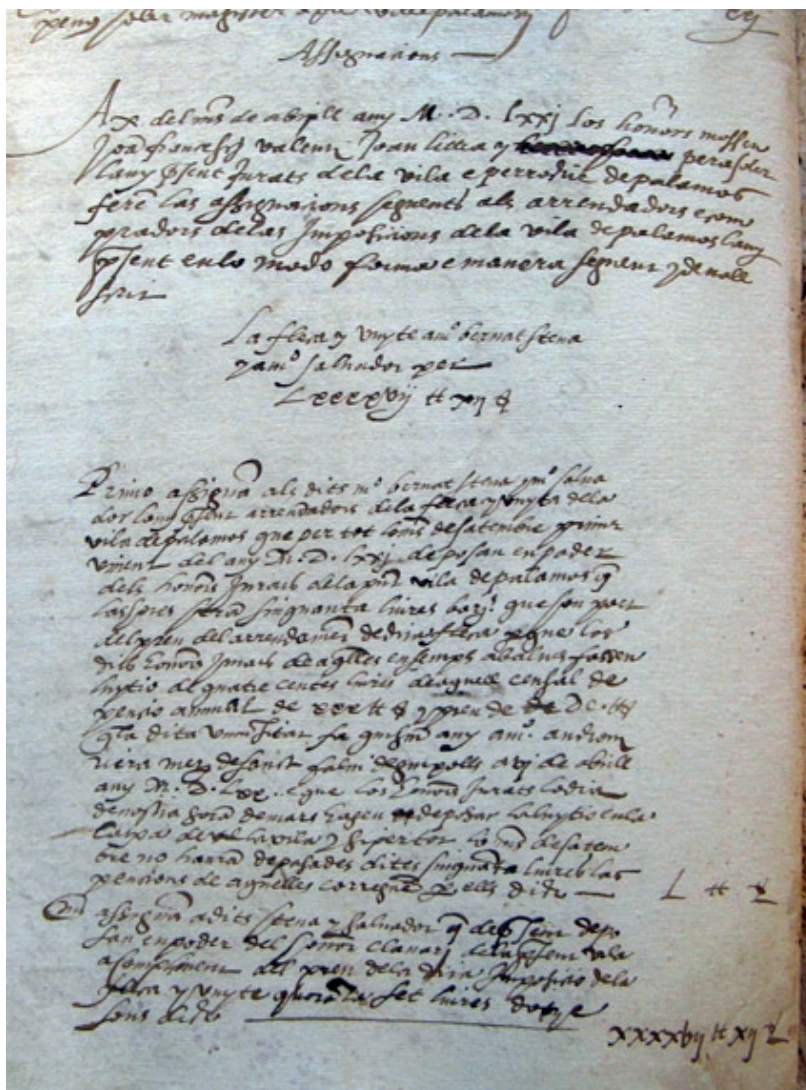 Assignacions
A x del mes de abrill any M. D. Lxxj los honors mossen
Joan franch valenti Joan littra y per asser
lany psent Jurats dela vila e perroquia de palamos
feren las assignacions seguents als arrendadors e com
pradors delas Imposicions dela vila de palamos lany
psent en lo modo forma e manera seguent y devall
scrit
La fleca y vinyte a mo bernat stena
y a mo salvador per
Lxxxxvij tt xij s
Primo assigna als dits mo bernat stena y mo salva
dor lany psent arrendadors dela fleca y vinyta dela
vila de palamos que per tot lo mes de satembre primer
vinent del any M. D. lxxj deposan en poder
dels honors Jurats dela pnt vila de palamos
singuanta liures que son part
del preu del arrendament de dita fleca per que los
dits honors Jurats de aqlles ensemps ab altres fassen
luytio de quatre centes liures de aquell censal de
pencio annual de xxx tt s y preu de DC tt s
dita universitat fa quiscun any a mo andreu
riera de sanct de a vj de abrill
any M. D. Lxx. e que los honors Jurats lo dia
de nostra sora de mars hagen depositar la luytio en la
caixa de la vila y si per tot lo mes de satem
bre no hauran deposades dites singuanta liures las
pencions de aquelles corregan per ells dits L tt s
assigna a dits stena y salvador q de psent depo
san en poder del señor clavari dela psent vila
a compliment del preu dela dita Imposicio dela
fleca y vinyte quoranta set liures dotze
sous dits xxxxvij tt xij s